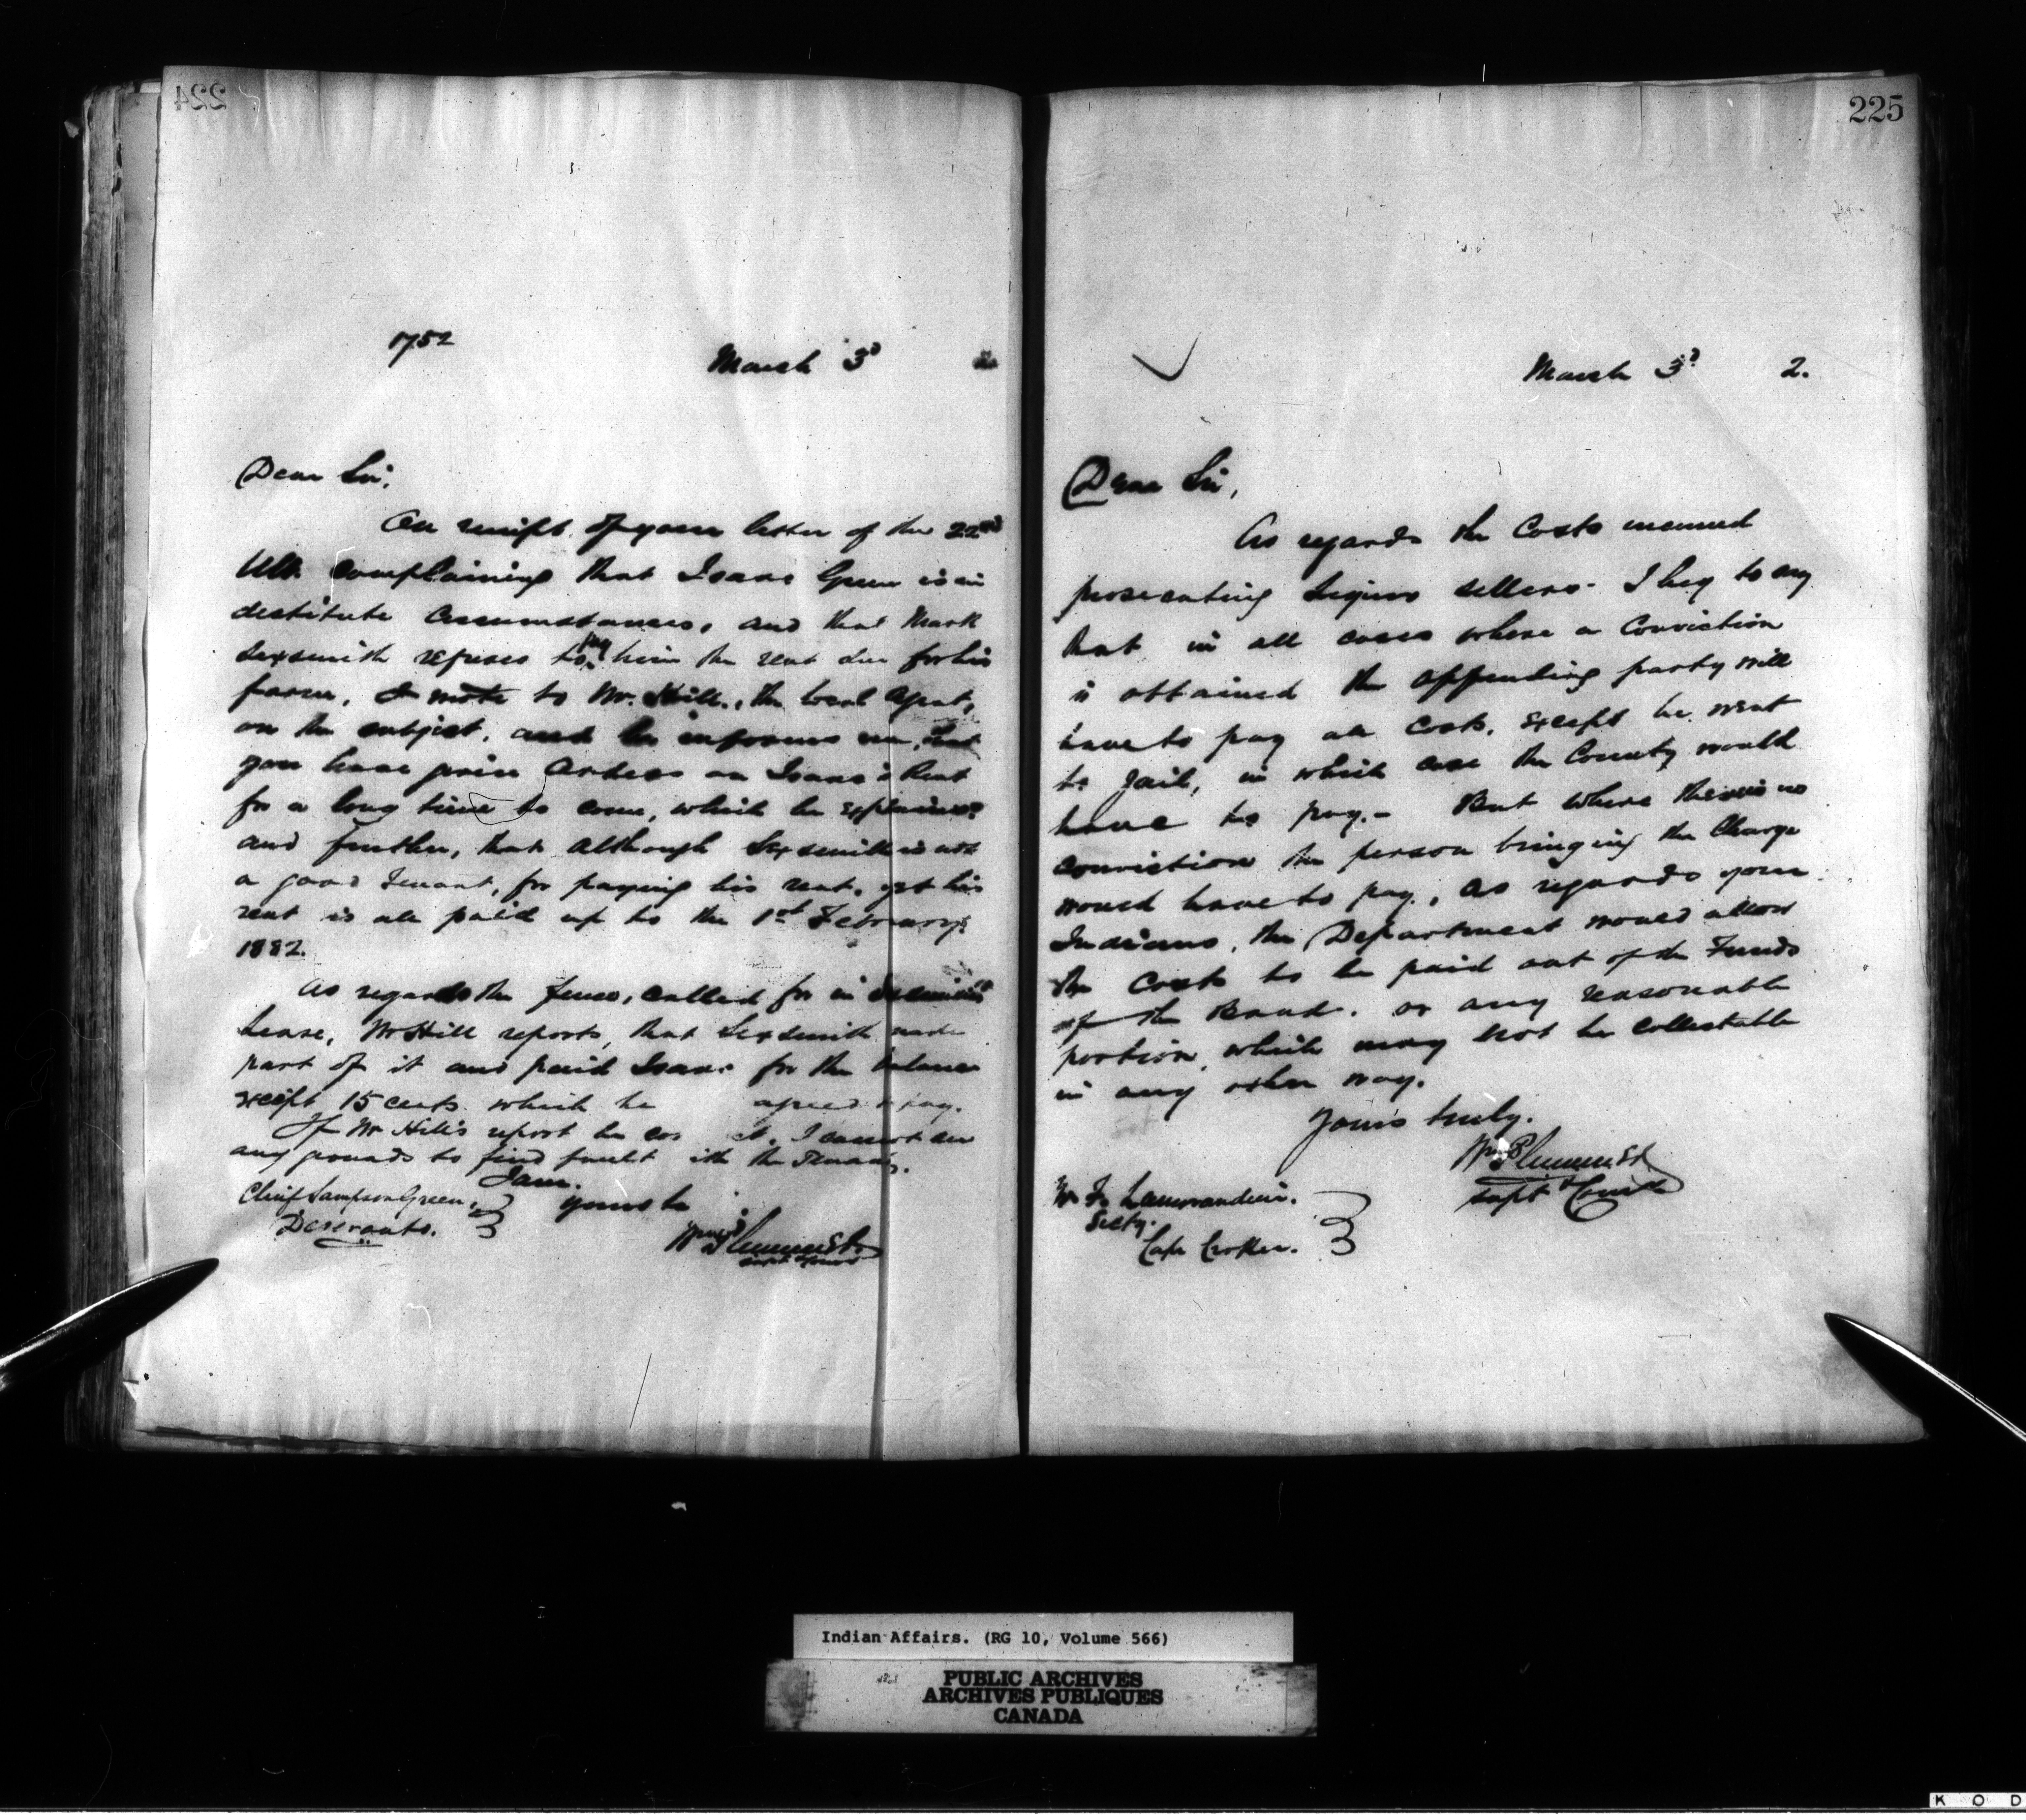 224
1752
March 3d 2
Dear Sir,
On receipt of your letter of the 22nd
Ult. complaining that Isaac Green is in
destitute circumstances, and that Mark
Sexsmith refuses to pay him the rent due for his
farm, I wrote to Mr. Hill, the local Agent,
on the subject, and he informs me, that
you have given Orders on Isaac's Rent
for a long time to come, which he explained
and further, that although Sexsmith is not
a good Tenant, for paying his rent, yet his
rent is all paid up to the 1st February
1882.
As regards the fence, called for in
Lease, Mr Hill reports, that Sexsmith made
part of it and paid Isaac for the balance
except 15 cents which he agreed to pay.
If Mr Hill's report be cor ct. I cannot see
any grounds to find fault ith the Tenant.
I am.
Yours &c
Chief Sampson Green,
Deseronto.
Wm Plummer
Supt &
225
March 3d 2.
Dear Sir,
As regards the Costs incurred
prosecuting Liquor sellers- I beg to say
that in all cases where a Conviction
is obtained the offending party will
have to pay all Costs, except he went
to Jail, in which case the County would
have to pay.- But where there is no
conviction the person bringing the Charge
would have to pay, as regards your
Indians, the Department would allow
the Costs to be paid out of the Funds
of the Band. or any reasonable
portion, which may not be collectable
in any other way.
Yours truly.
Wm Plummer
Supt &
Lamorandiere.
Secty.
Cape Croker.
Indian Affairs. (RG 10, Volume 566)
PUBLIC ARCHIVES
ARCHIVES PUBLIQUES
CANADA
K O D